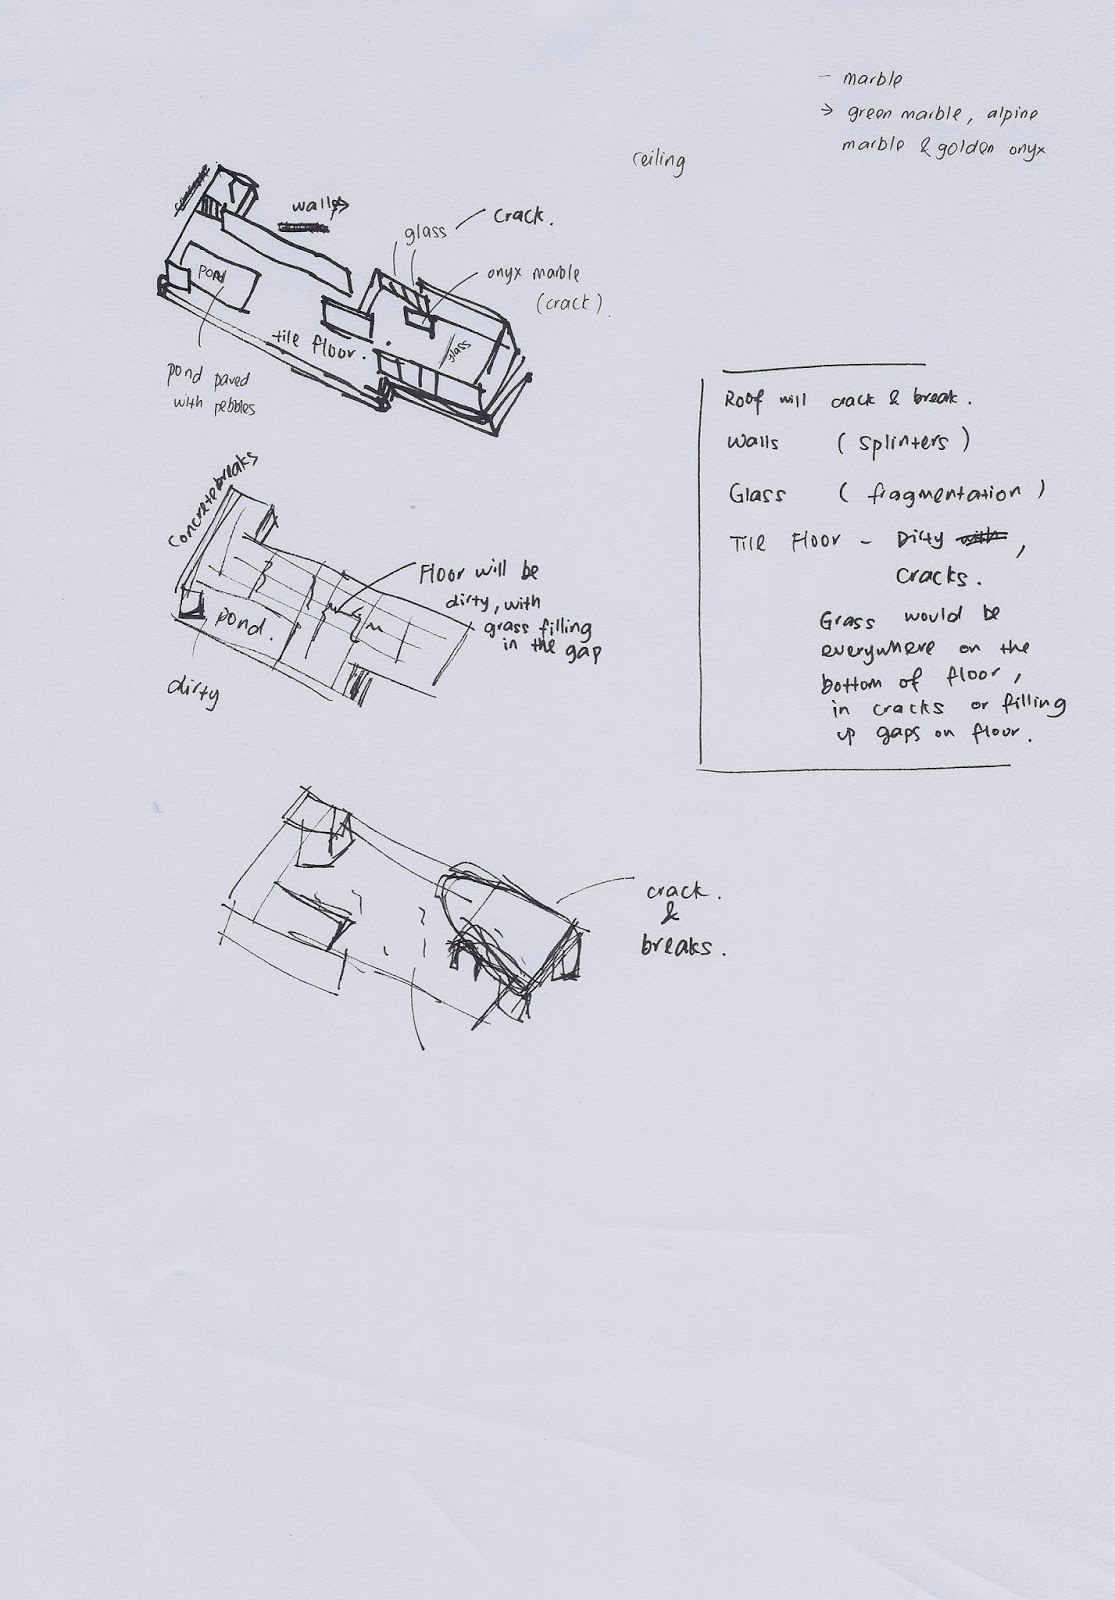 - marble
→ green marble, alpine
marble & golden onyx
ceiling
walls
glass
crack.
onyx marble
(crack)
pond
tile floor.
glass
pond paved
with pebbles
Roof will crack & break.
Walls (splinters)
Glass (fragmentation)
Tile Floor - Dirty with,
cracks.
Grass would be
everywhere on the
bottom of floor,
in cracks or filling
up gaps on floor.
concrete breaks
Floor will be
dirty, with
grass filling
in the gap
pond.
dirty
crack.
&
breaks.